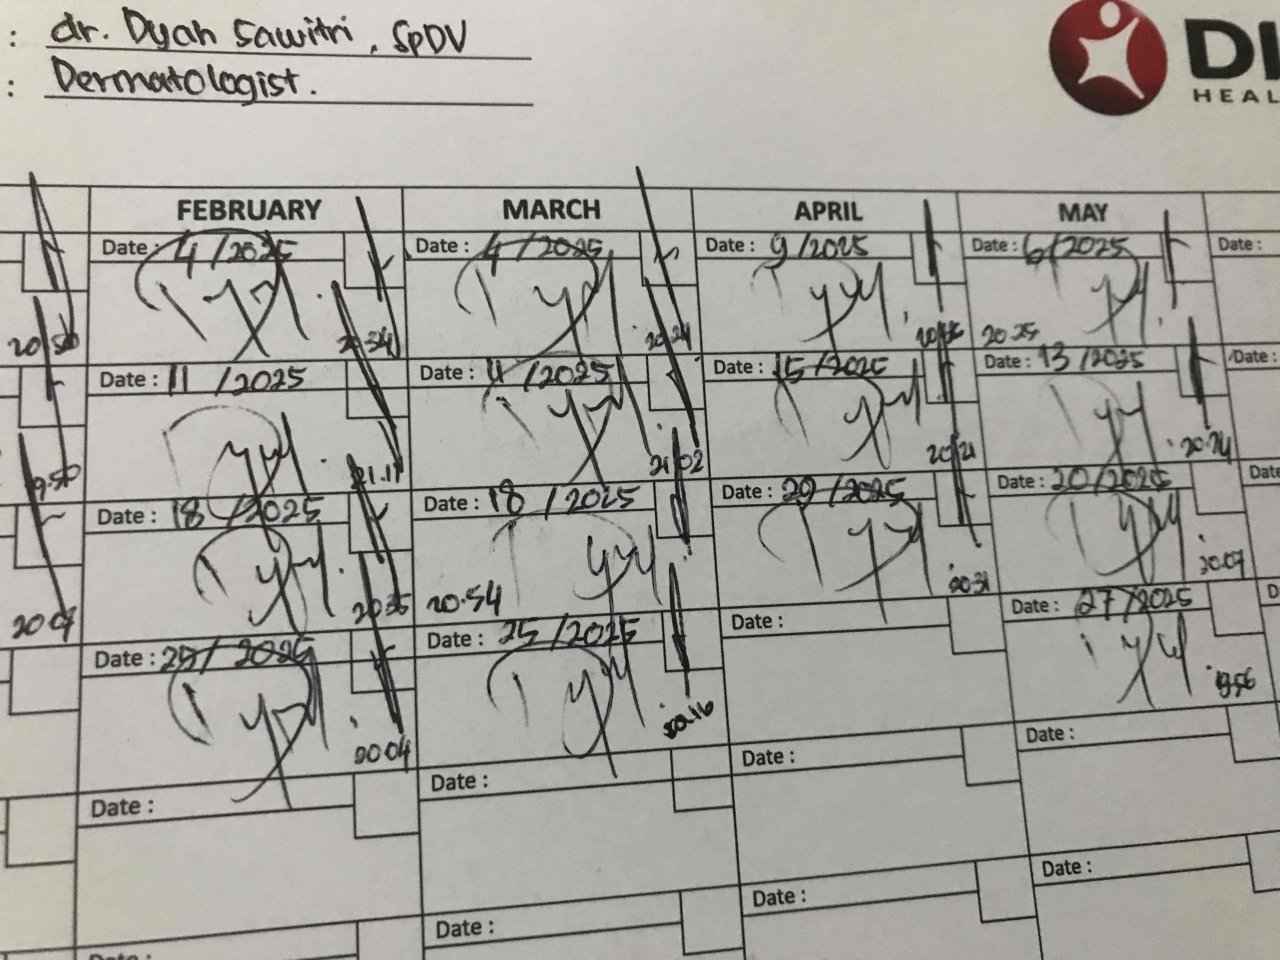 : dr. Dyah Sawitri, SpDV
: Dermatologist.
DI
HEAL
FEBRUARY MARCH APRIL MAY
Date: 4 /2025 Date: 4 /2025 Date: 9 /2025 Date: 6 /2025 Date:
20.34 20.24 20.25
Date: 11 /2025 Date: 11 /2025 Date: 15 /2025 Date: 13 /2025 Date:
19.50 21.11 21.02 20.21 20.24
Date: 18 /2025 Date: 18 /2025 Date: 29 /2025 Date: 20 /2025 Date
20.07 20.35 20.54 20.31 20.07
Date: 25 / 2025 Date: 25 /2025 Date: Date: 27 /2025 D
20.04 20.16 19.56
Date: Date: Date: Date:
Date: Date: Date:
Date: